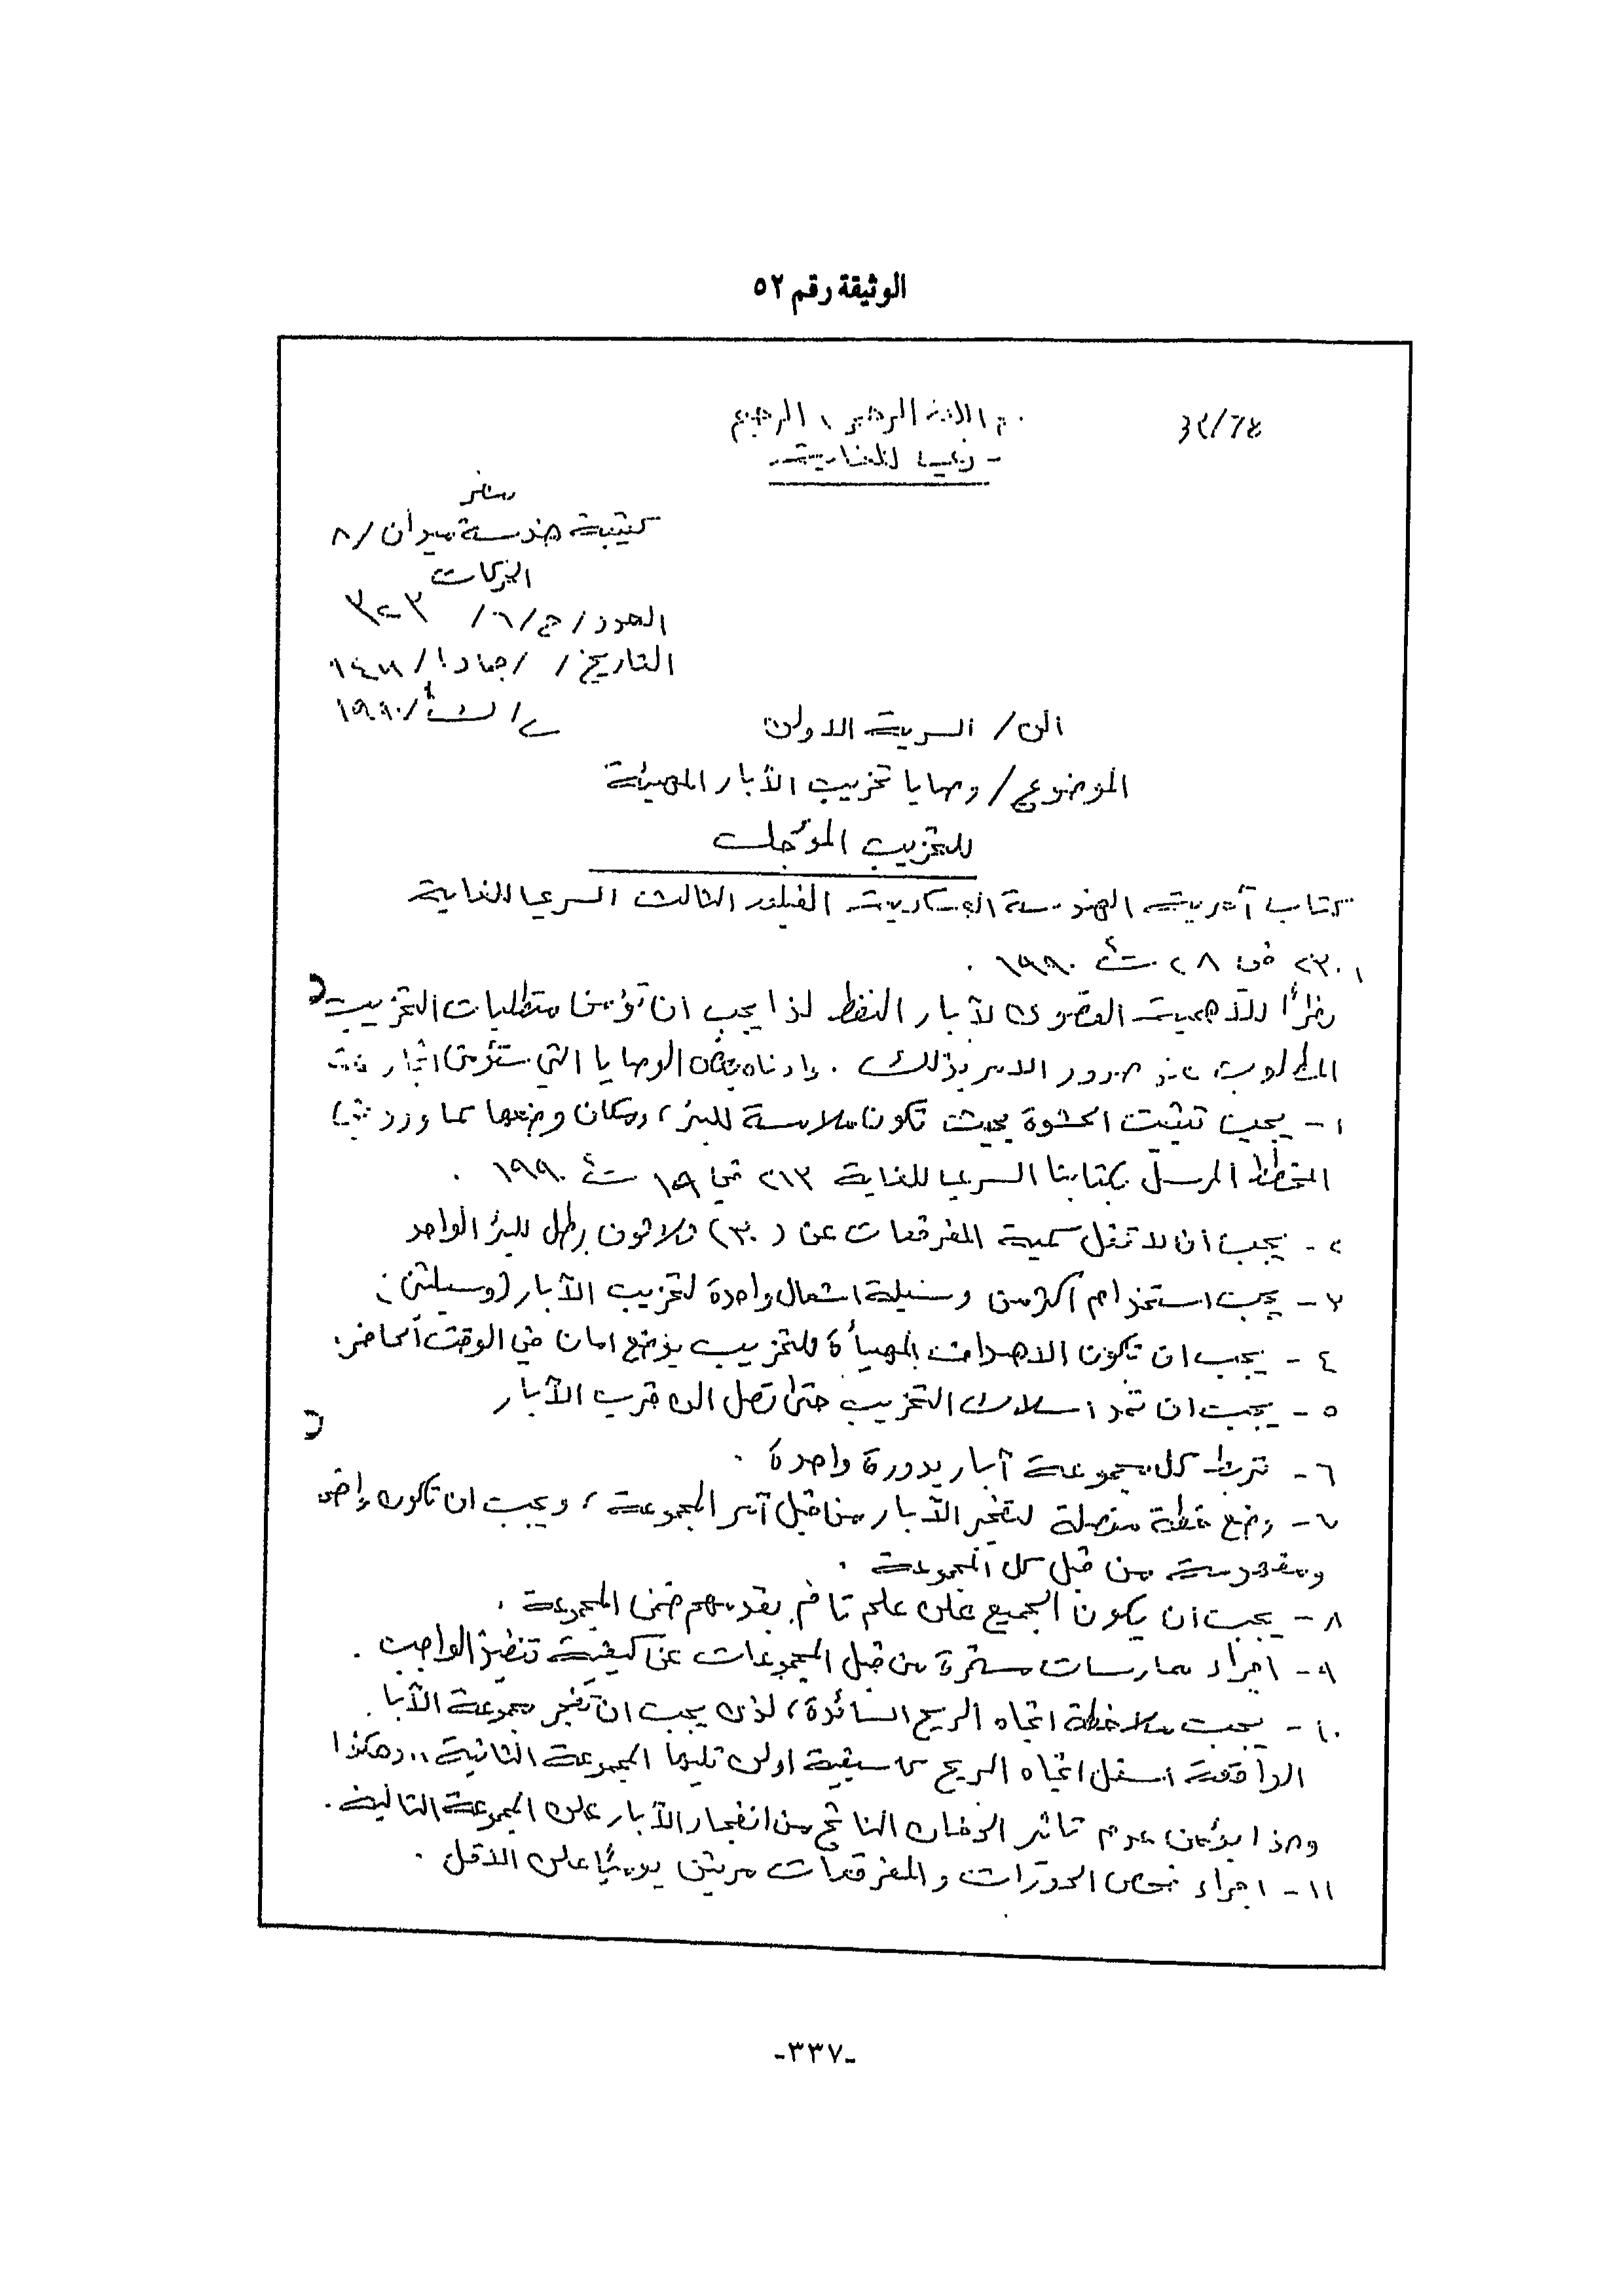 الوثيقة رقم ٥٢
الرحيم
كتيبة هندسة ميدان / ٨
الحركات
العدد / ح / ٦ /
التاريخ / / جماد١ /
الى / السرية الاولى
الموضوع / وصايا تخريب الآبار المهيئة
للتخريب المؤجلـ
كتاب آمرية الهندسة العسكرية الفيلق الثالث السري للغاية
في ٢٨ ت٢ ١٩٩٠ .
نظراً للأهمية القصوى لآبار النفط لذا يجب ان تؤمن متطلبات التخريب
المطلوب عند صدور الامر بذلك . وادناه بعض الوصايا التي ستؤمن
١ - يجب تثبيت الحشوة بحيث تكون ملامسة للبئر ، ومكان وضعها كما ورد
المخطط المرسل بكتابنا السري للغاية ٢١٣ في ١٩ ت٢ ١٩٩٠ .
٢ - يجب ان لا تقل كمية المفرقعات عن ( ٣٠ ) ثلاثون رطل للبئر الواحد
٣ - يجب استخدام اكثر من وسيلة اشعال واحدة لتخريب الآبار ( وسيلتين )
٤ - يجب ان تكون الاهداف المهيأة للتخريب بوضع امان في الوقت الحاضر .
٥ - يجب ان تمد اسلاك التخريب حتى تصل الى قرب الآبار
٦ - تربط كل مجموعة آبار بدورة واحدة .
٧ - وضع خطة مفصلة لتفجير الآبار من قبل آمر المجموعة ، ويجب ان تكون
ومفهومة من قبل كل المجموعة .
٨ - يجب ان يكون الجميع على علم تام ضمن المجموعة .
٩ - اجراء ممارسات مستمرة من قبل المجموعات عن كيفية تنفيذ الواجب .
١٠ - يجب ملاحظة اتجاه الريح السائدة ، لذى يجب ان تفجر مجموعة الآبا
الواقعة اسفل اتجاه الريح كاسبقية اولى تليها المجموعة الثانية .. وهكذا
وهذا يؤمن عدم تاثير الدخان الناتج من انفجار الآبار على المجموعة التالية .
١١ - اجراء فحص الدورات والمفرقعات مرتين يومياً على الاقل .
-٣٣٧-